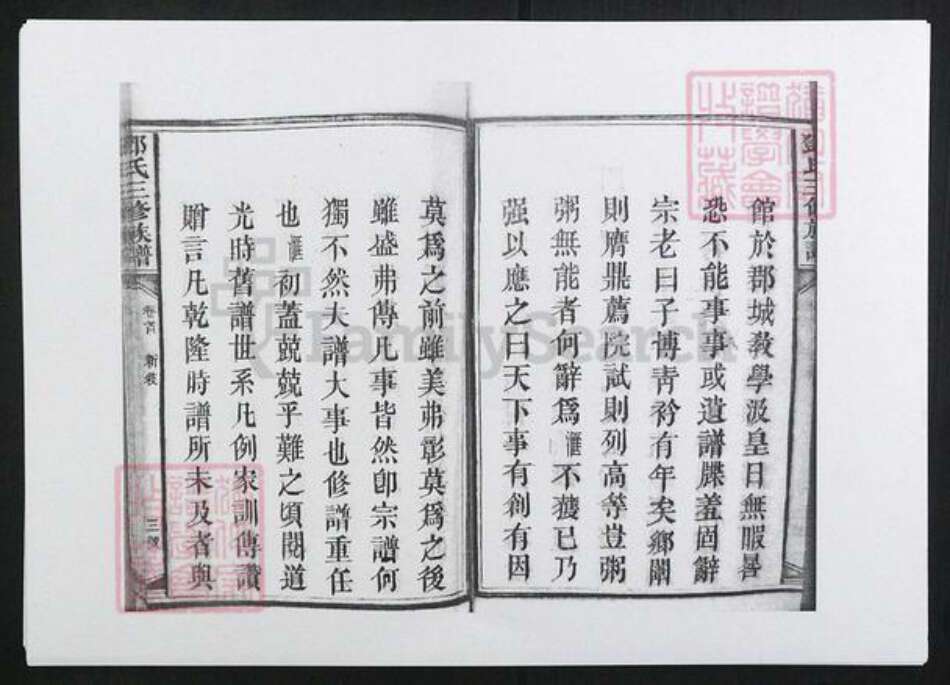 館於郡城教學汲皇日無暇晷
恐不能事事或遺譜牒羞固辭
宗老曰子博青衿有年矣鄉闈
則膺鼎薦院試則列高等豈粥
粥無能者何辭爲滙不獲已乃
强以應之曰天下事有創有因
莫爲之前雖美弗彰莫爲之後
雖盛弗傳凡事皆然卽宗譜何
獨不然夫譜大事也修譜重任
也滙初蓋兢兢乎難之頃閱道
光時舊譜世系凡例家訓傳讚
贈言凡乾隆時譜所未及者與
鄧氏三修族譜
卷首
新叙
三
FamilySearch